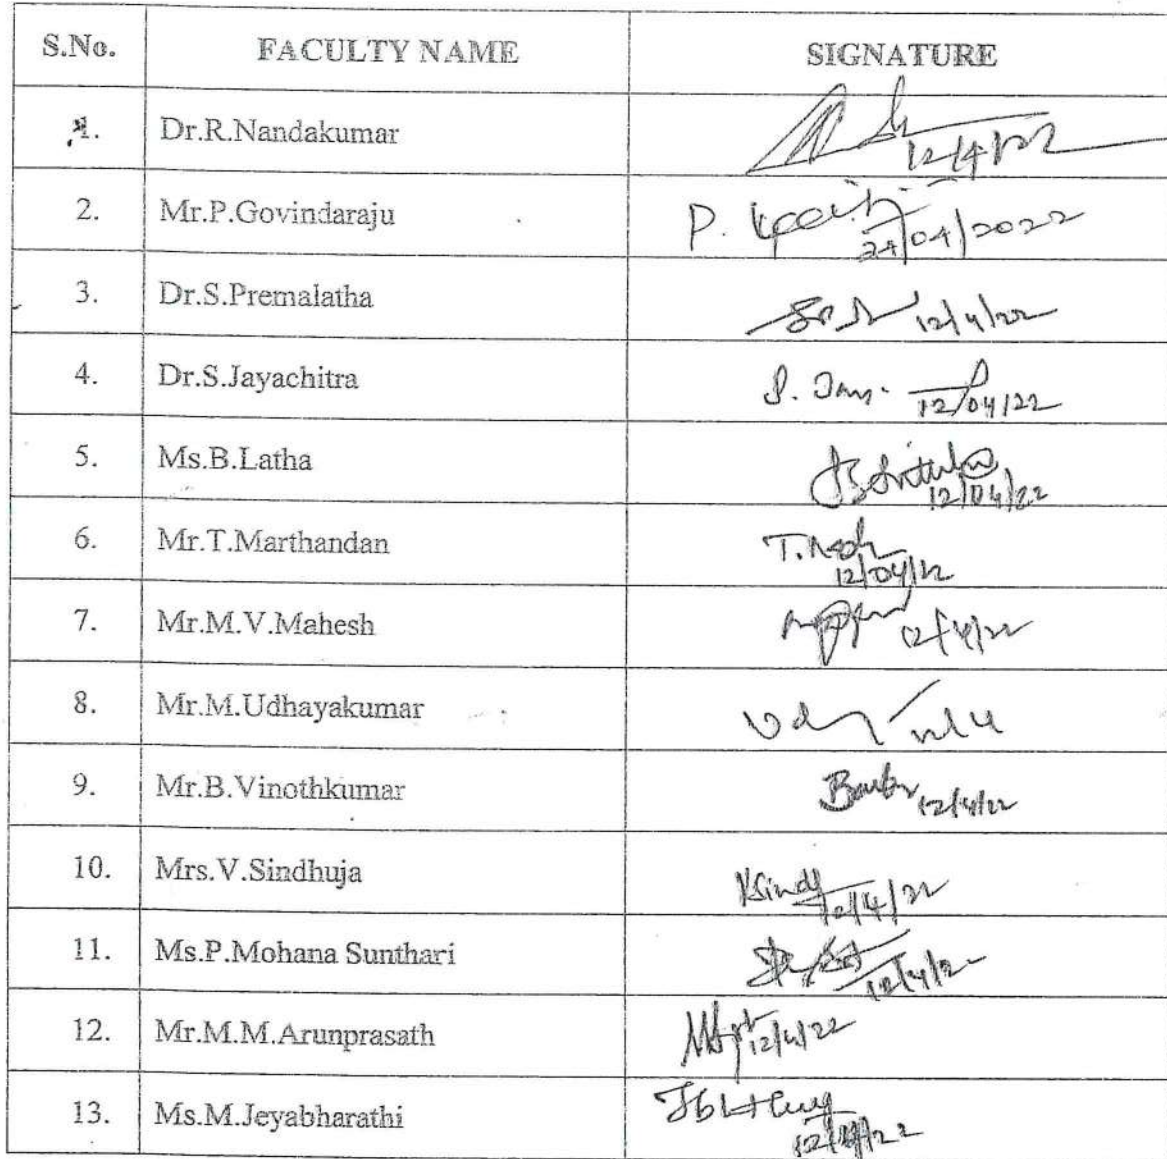 S.No. FACULTY NAME SIGNATURE
1. Dr.R.Nandakumar 12/4/22
2. Mr.P.Govindaraju P.
24/04/2022
3. Dr.S.Premalatha 12/4/22
4. Dr.S.Jayachitra S. Jay.
12/04/22
5. Ms.B.Latha
12/04/22
6. Mr.T.Marthandan T.
12/04/22
7. Mr.M.V.Mahesh 12/4/22
8. Mr.M.Udhayakumar
9. Mr.B.Vinothkumar 12/4/22
10. Mrs.V.Sindhuja VSindy
12/4/22
11. Ms.P.Mohana Sunthari
12/4/22
12. Mr.M.M.Arunprasath 12/4/22
13. Ms.M.Jeyabharathi
12/4/22